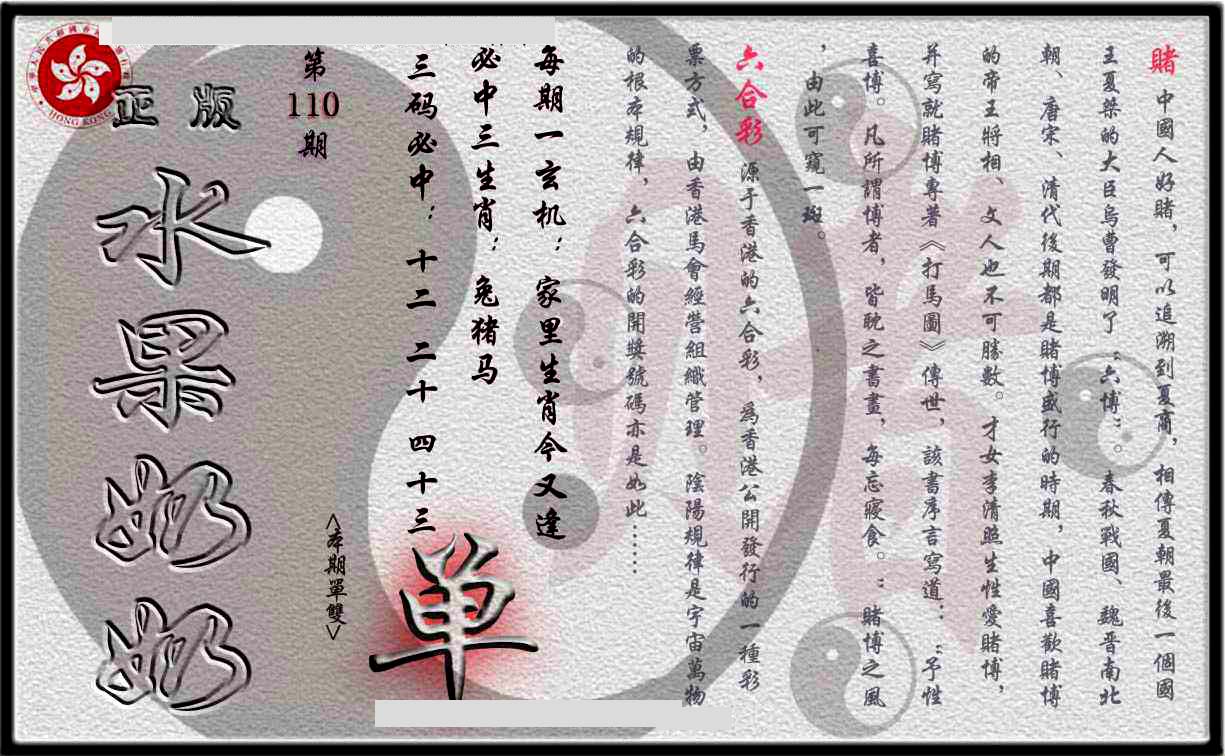 賭 中國人好賭，可以追溯到夏商，相傳夏朝最後一個國
王夏桀的大臣烏曹發明了“六博”。春秋戰國、魏晋南北
朝、唐宋、清代後期都是賭博盛行的時期，中國喜歡賭博
的帝王將相、文人也不可勝數。才女李清照生性愛賭博，
并寫就賭博專著《打馬圖》傳世，該書序言寫道：“予性
喜博。凡所謂博者，皆耽之書畫，每忘寢食。”賭博之風
，由此可窺一斑。
六合彩 源于香港的六合彩，爲香港公開發行的一種彩
票方式，由香港馬會經營組織管理。陰陽規律是宇宙萬物
的根本規律，六合彩的開獎號碼亦是如此……
每期一玄机：家里生肖今又逢
必中三生肖：兔猪马
三码必中：十二 二十 四十三
单
<本期單雙>
第
110
期
正版
水果奶奶
HONG KONG